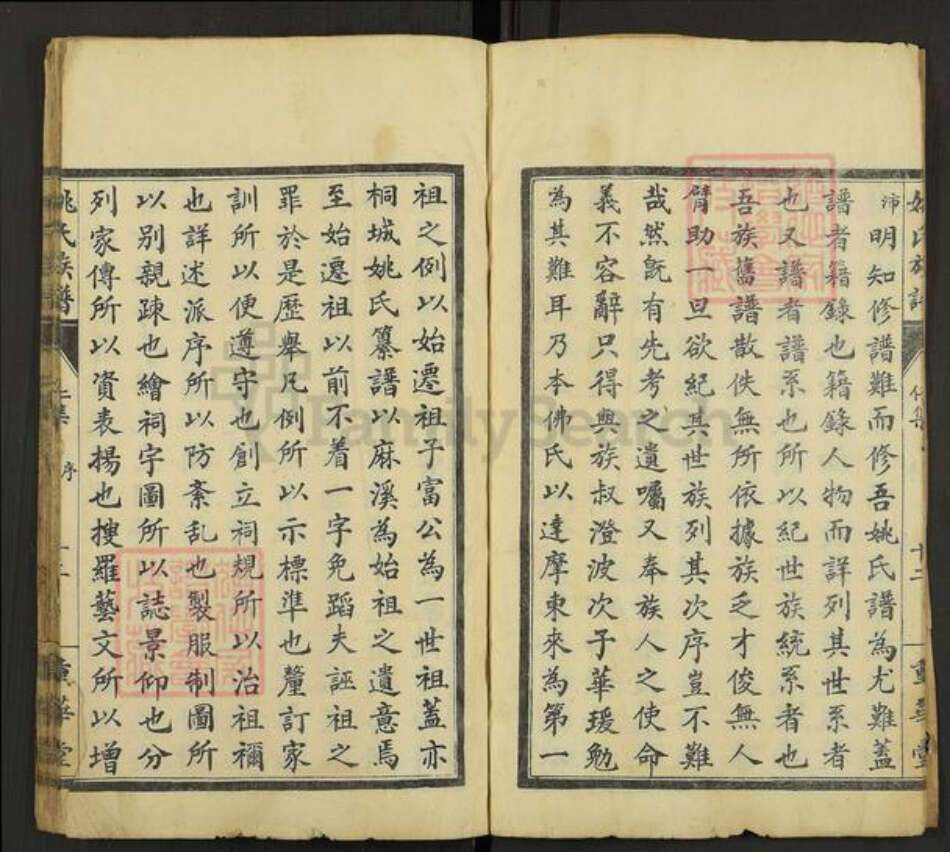 沛明知修譜難而修吾姚氏譜為尤難蓋
譜者籍錄也籍錄人物而詳列其世系者
也又譜者譜系也所以紀世族統系者也
吾族舊譜散佚無所依據族乏才俊無人
臂助一旦欲紀其世族列其次序豈不難
哉然既有先考之遺囑又奉族人之使命
義不容辭只得與族叔澄波次子華瑗勉
為其難耳乃本佛氏以達摩東來為第一
祖之例以始遷祖子富公為一世祖蓋亦
桐城姚氏纂譜以麻溪為始祖之遺意焉
至始遷祖以前不着一字免蹈夫誣祖之
罪於是歷舉凡例所以示標準也釐訂家
訓所以便遵守也創立祠規所以治祖禰
也詳述派序所以防紊乱也製服制圖所
以別親疎也繪祠字圖所以誌景仰也分
列家傳所以資表揚也搜羅藝文所以增
姚氏族譜
序
重華堂
FamilySearch